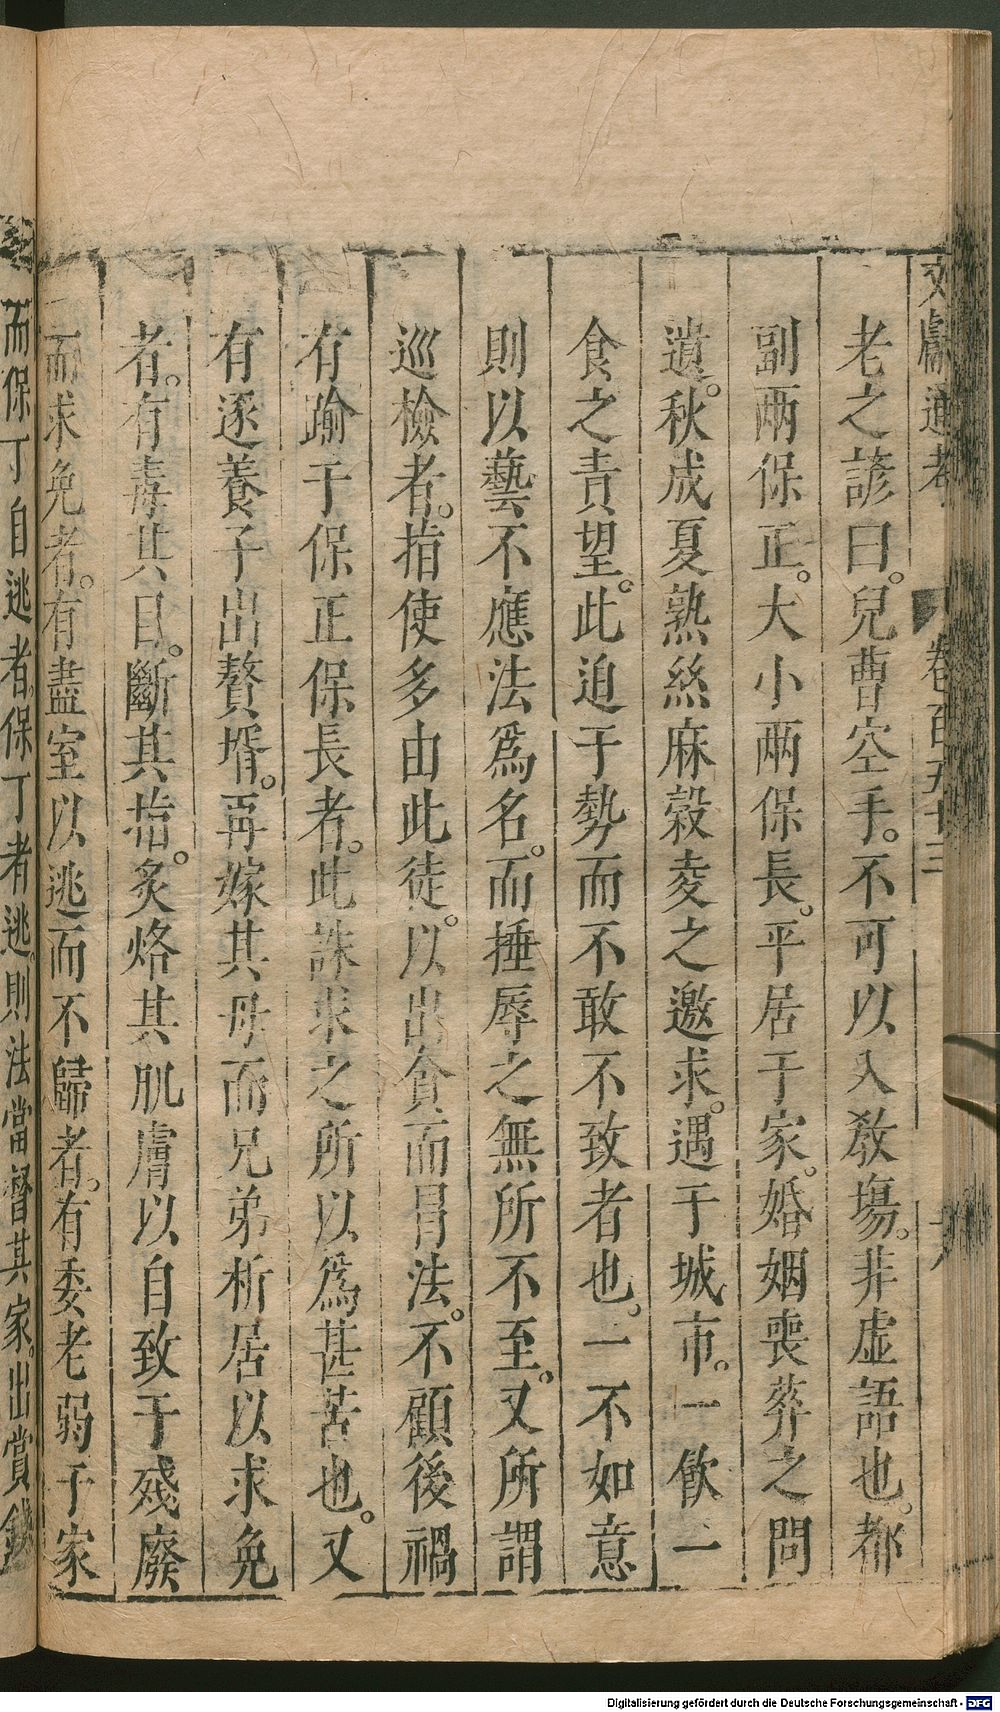 文獻通考 卷百五十三 十八
老之諺曰。兒曹空手。不可以入教塲。非虛語也。都
副兩保正。大小兩保長。平居于家。婚姻喪葬之問
遺。秋成夏熟絲麻穀麦之邀求。遇于城市。一飲一
食之責望。此迫于勢而不敢不致者也。一不如意
則以藝不應法爲名。而捶辱之無所不至。又所謂
巡檢者。指使多由此徒。以出貪而冒法。不顧後禍
有踰于保正保長者。此誅求之所以爲甚苦也。又
有逐養子出贅壻。再嫁其母而兄弟析居以求免
者。有毒其目。斷其指。炙烙其肌膚以自致于殘廢
而求免者。有盡室以逃而不歸者。有委老弱于家
而保丁自逃者。保丁者逃。則法當督其家。出賞錢
Digitalisierung gefördert durch die Deutsche Forschungsgemeinschaft - DFG